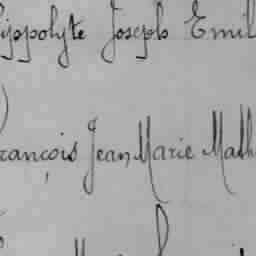 Hippolyte Joseph Emil
François Jean Marie Math